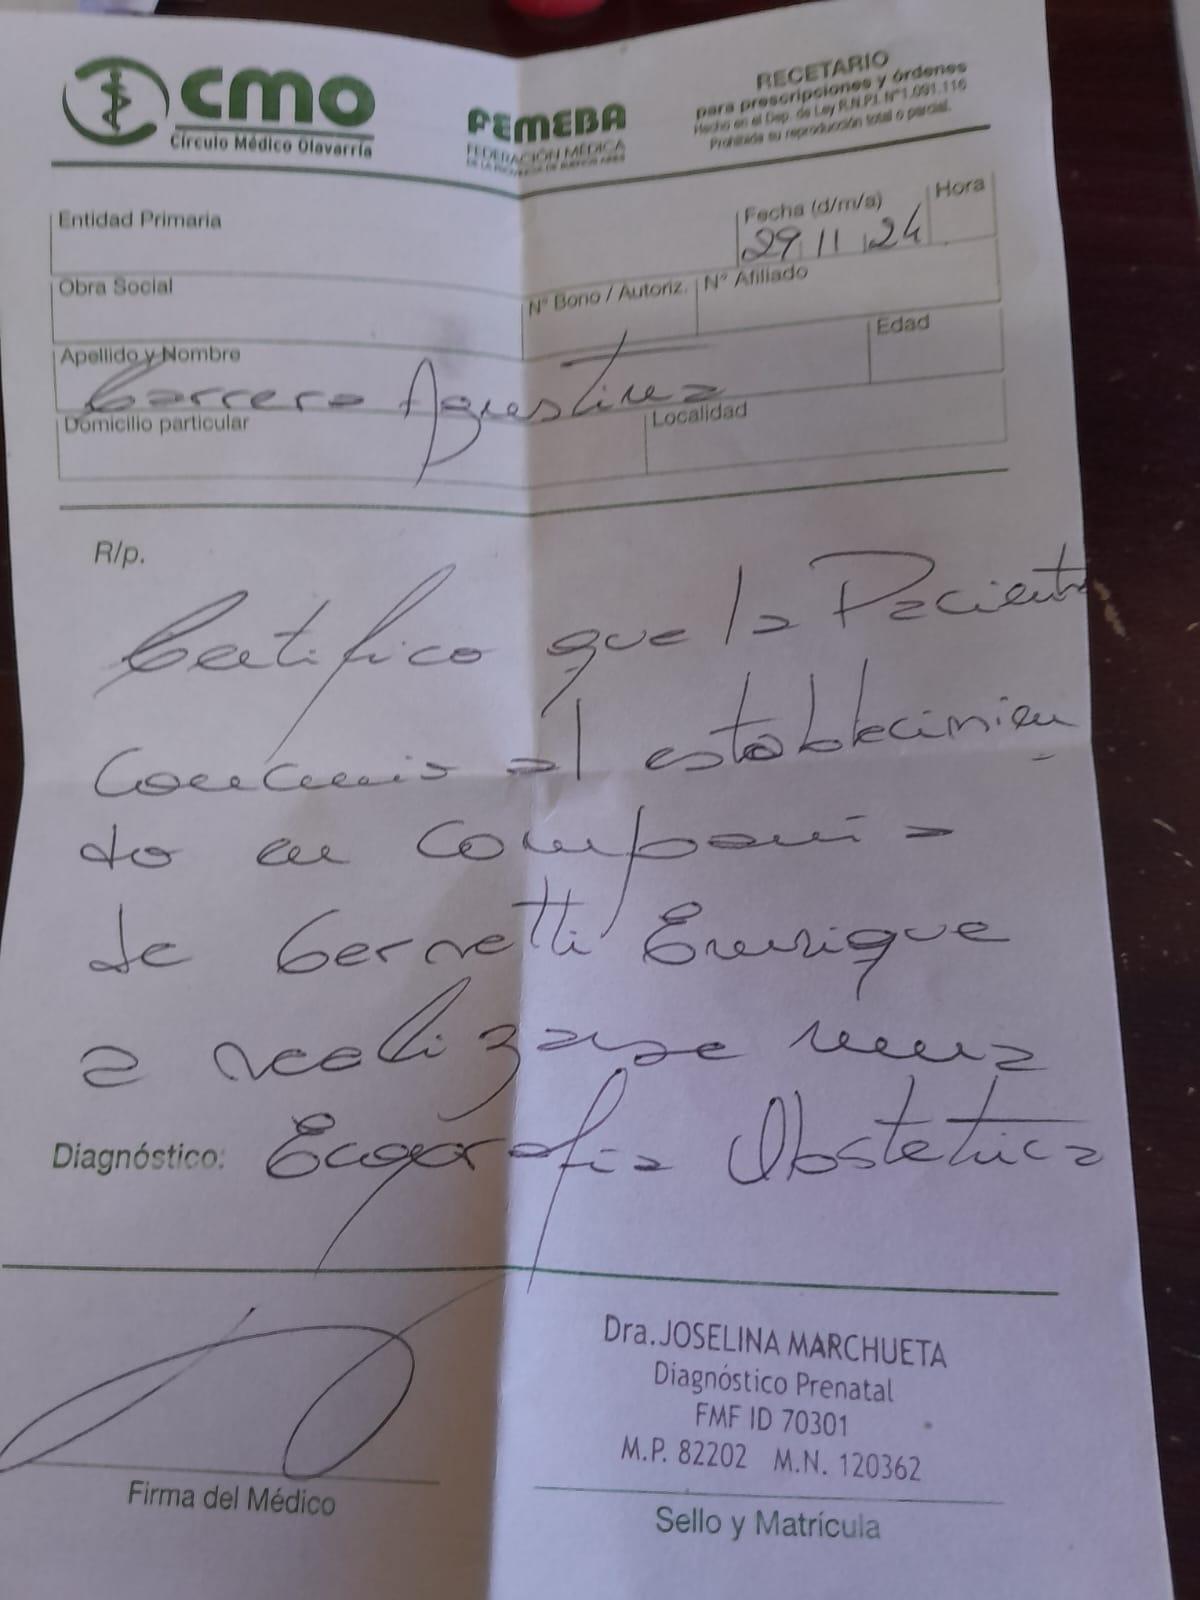 CMO
Círculo Médico Olavarría
FEMEBA
FEDERACIÓN MÉDICA
DE LA PROVINCIA DE BUENOS AIRES
RECETARIO
para prescripciones y órdenes
Hecho en el Dep. de Ley R.N.P.I. N°1.091.116
Prohibida su reproducción total o parcial.
Entidad Primaria
Fecha (d/m/a)
Hora
29 11 24
Obra Social
N° Bono / Autoriz.
N° Afiliado
Apellido y Nombre
Edad
Carrera Agustina
Domicilio particular
Localidad
R/p.
Certifico que la Paciente
Concurrio al establecimien
to en compañia
de Cernetti Enrique
a realizarse una
Diagnóstico: Ecografia Obstetrica
Dra. JOSELINA MARCHUETA
Diagnóstico Prenatal
FMF ID 70301
M.P. 82202 M.N. 120362
Firma del Médico
Sello y Matrícula